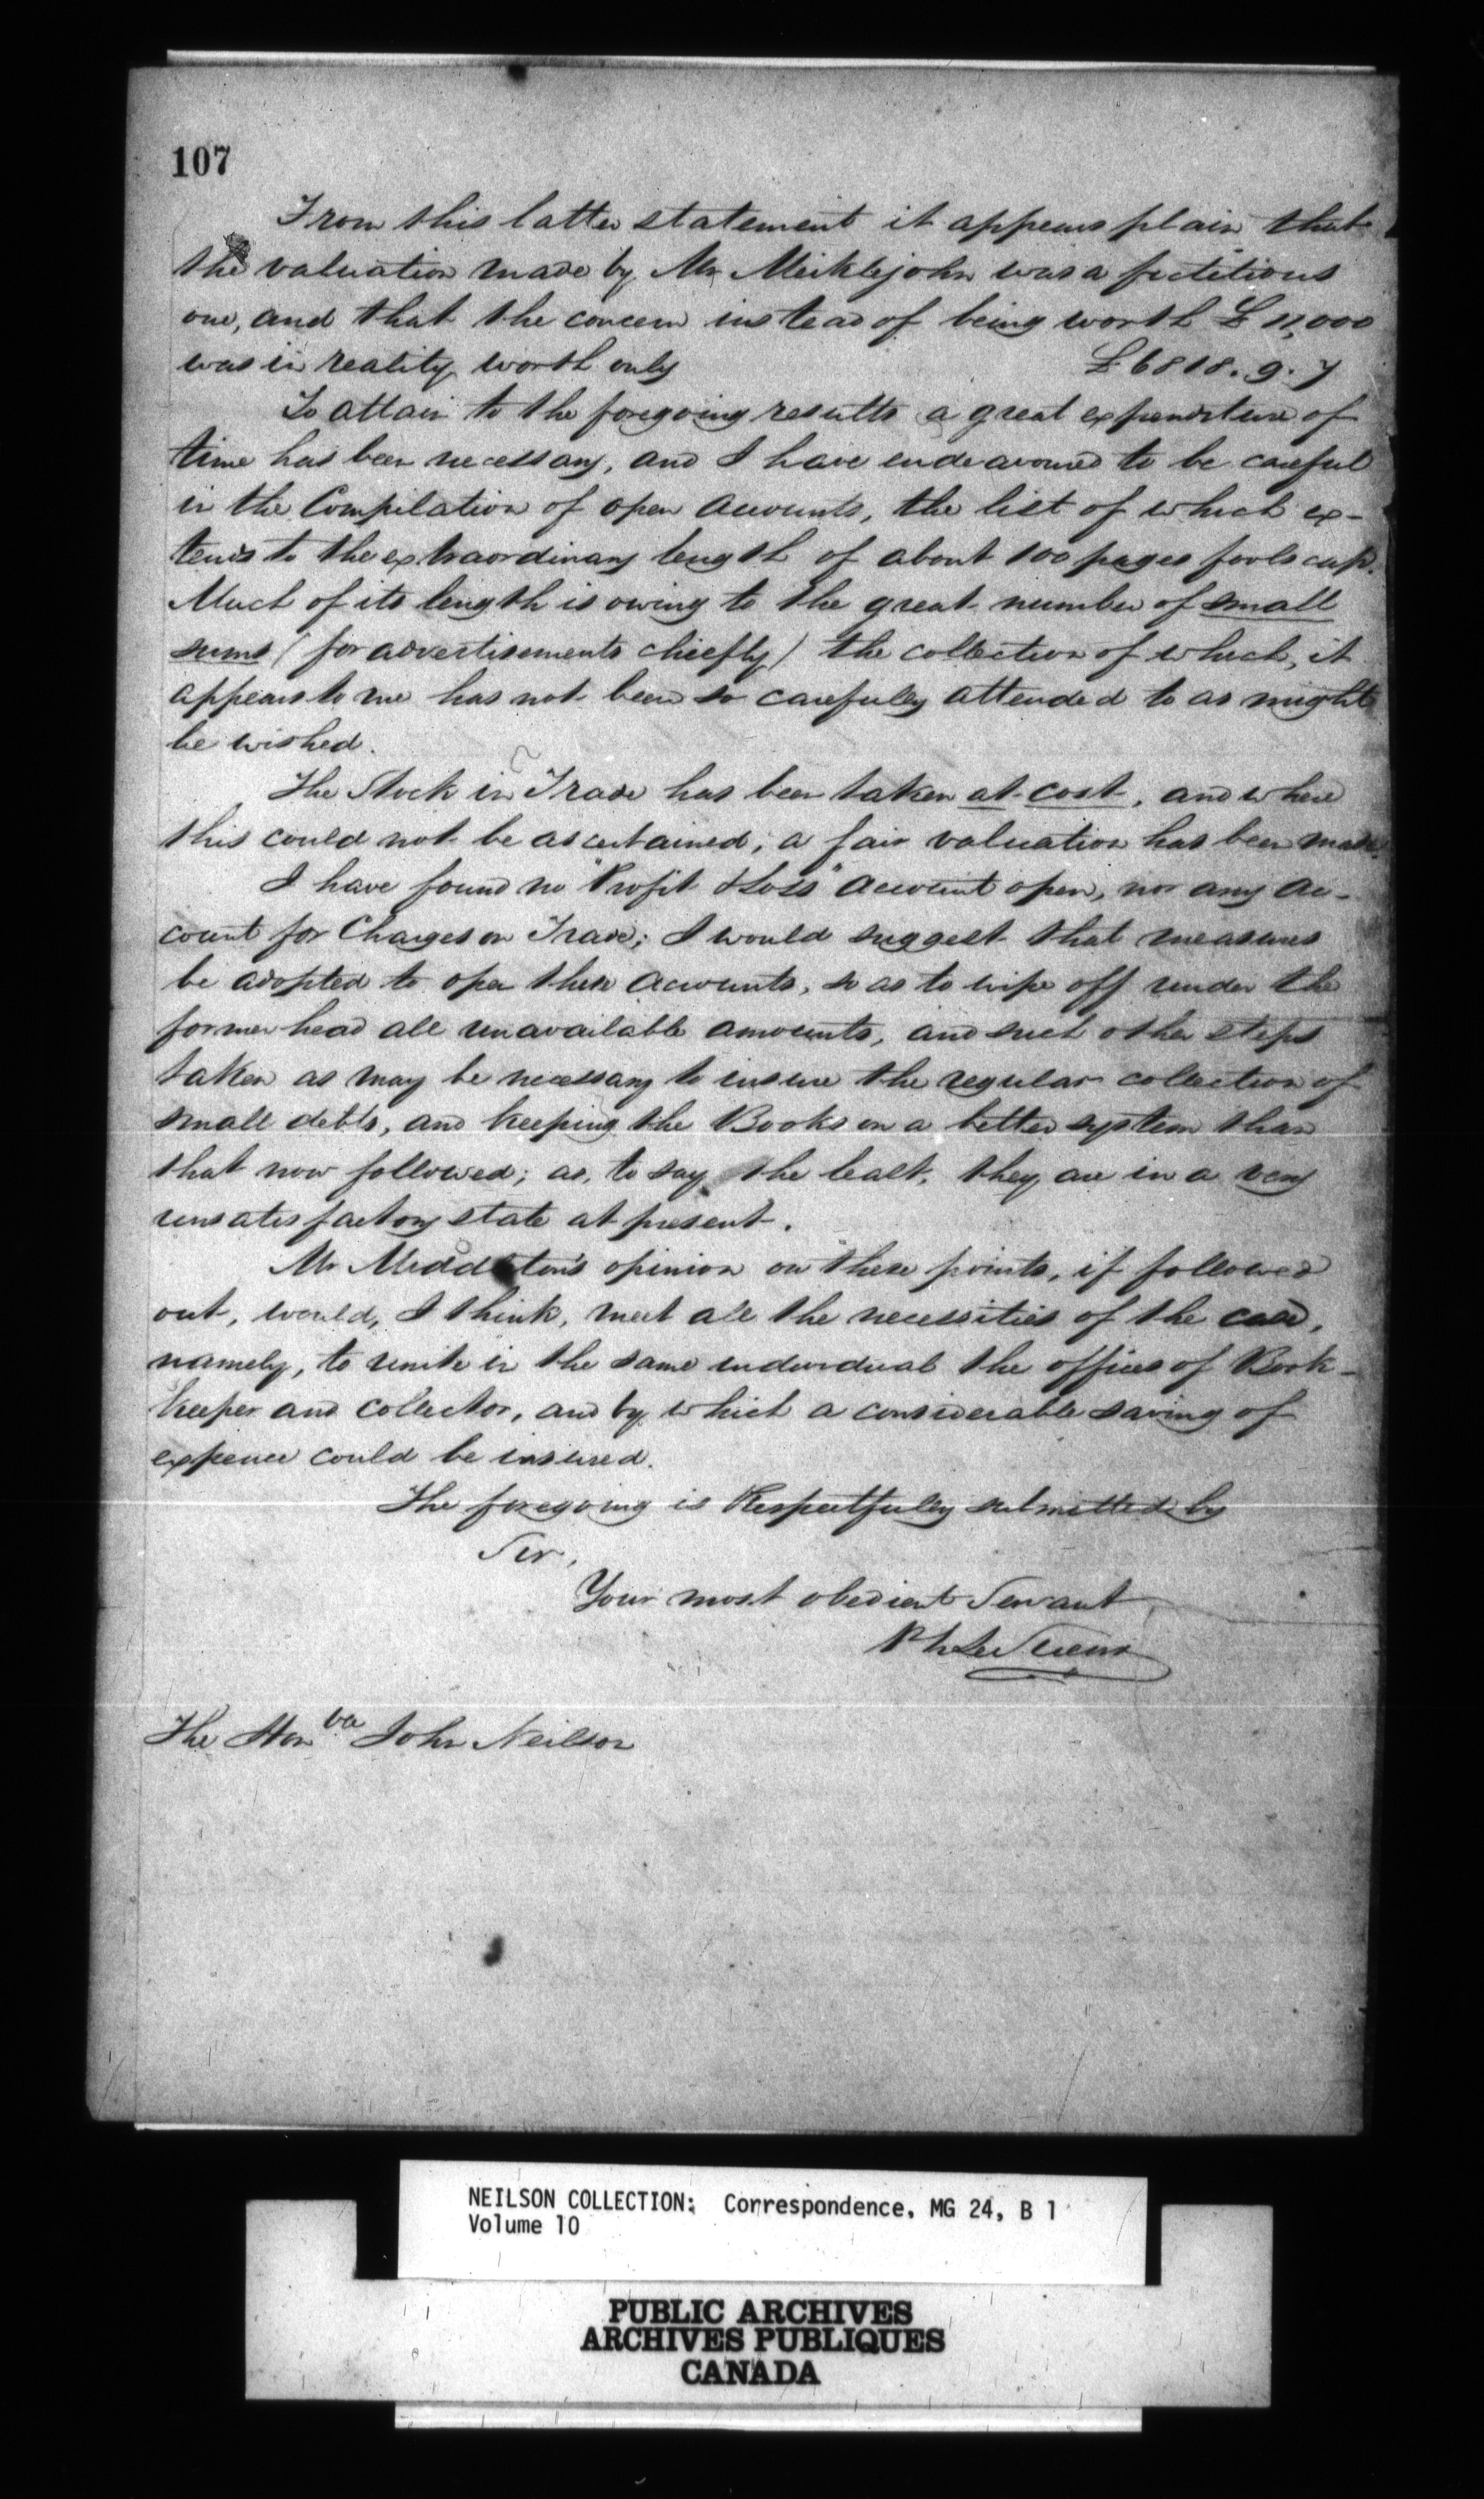 107
From this latter statement it appears plain that
the valuation made by Mr Meiklejohn was a fictitious
one, and that the concern instead of being worth £11,000
was in reality worth only £6818. 9. 7
To attain to the foregoing results a great expenditure of
time has been necessary, and I have endeavoured to be careful
in the Compilation of open Accounts, the list of which ex-
tends to the extraordinary length of about 100 pages foolscap.
Much of its length is owing to the great number of small
sums (for advertisements chiefly) the collection of which, it
appears to me has not been so carefully attended to as might
be wished.
The Stock in Trade has been taken at cost, and where
this could not be ascertained, a fair valuation has been made.
I have found no "Profit & Loss" Account open, nor any Ac-
count for Charges on Trade; I would suggest that measures
be adopted to open these Accounts, so as to wipe off under the
former head all unavailable amounts, and such other steps
taken as may be necessary to insure the regular collection of
small debts, and keeping the Books on a better system than
that now followed; as, to say the least, they are in a very
unsatisfactory state at present.
Mr Middleton's opinion on these points, if followed
out, would, I think, meet all the necessities of the case,
namely, to unite in the same individual the offices of Book-
keeper and collector, and by which a considerable saving of
expence could be insured.
The foregoing is Respectfully submitted by
Sir,
Your most obedient Servant
The Honble John Neilson
NEILSON COLLECTION: Correspondence, MG 24, B 1
Volume 10
PUBLIC ARCHIVES
ARCHIVES PUBLIQUES
CANADA